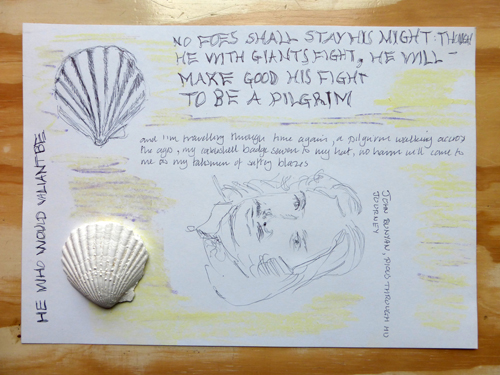 NO FOES SHALL STAY HIS MIGHT THOUGH
HE WITH GIANTS FIGHT, HE WILL -
MAKE GOOD HIS FIGHT
TO BE A PILGRIM
and I'm travelling through time again, a pilgrim walking across
the ages, my cockleshell badge sewn to my hat, no harm will come to
me as my talisman of safety blazes
HE WHO WOULD VALIANT BE
JOHN BUNYAN, THROUGH
JOURNEY